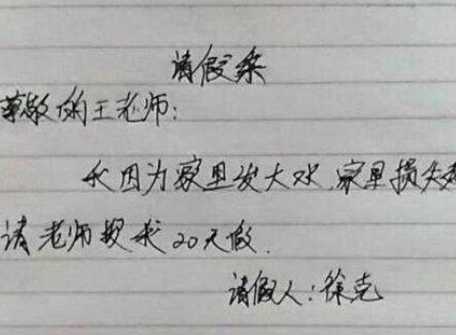 请假条
尊敬的王老师:
我因为家里发大水,家里损失
请老师批我20天假.
请假人:徐克